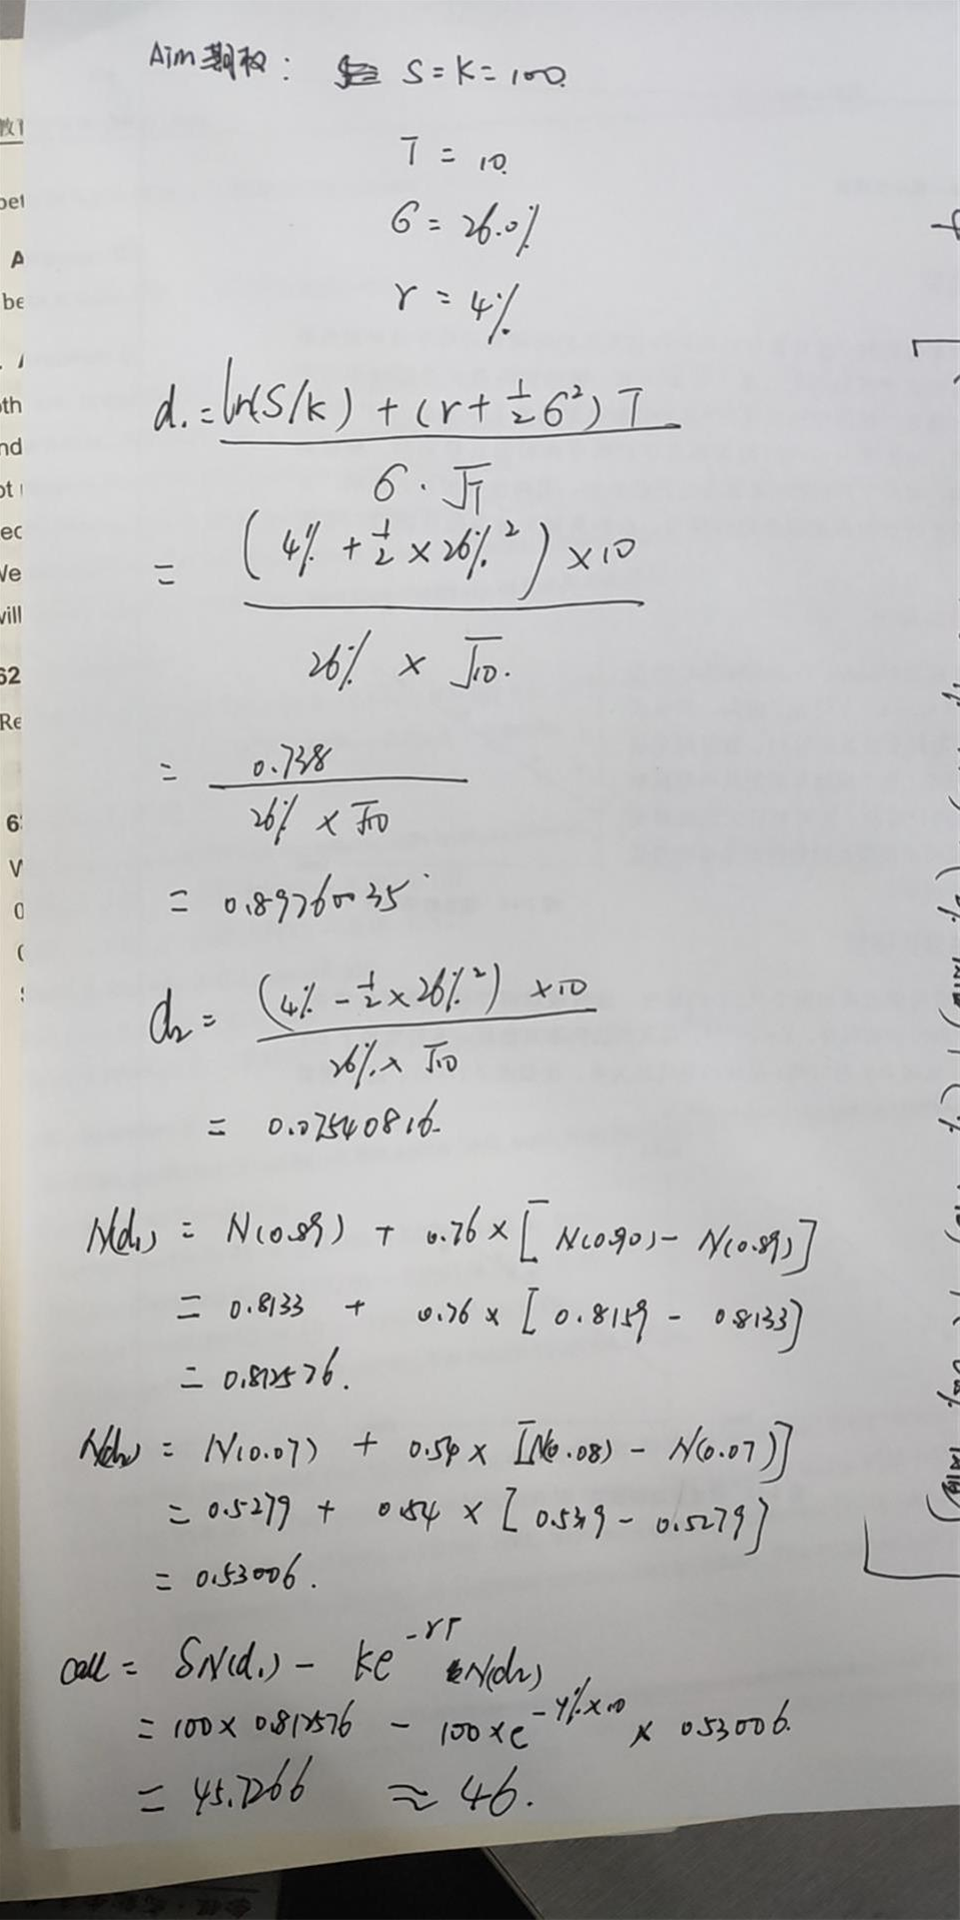 Aim期权: S = K = 100.
T = 10.
6 = 26.0%
r = 4%
d₁ = ln(S/K) + (r + 1/2 6²) T
6 · √T
= (4% + 1/2 × 26%²) × 10
26% × √10.
= 0.738
26% × √10
= 0.89760035
d₂ = (4% - 1/2 × 26%²) × 10
26% × √10
= 0.07540816.
N(d₁) = N(0.89) + 0.76 × [N(0.90) - N(0.89)]
= 0.8133 + 0.76 × [0.8159 - 0.8133]
= 0.812576.
N(d₂) = N(0.07) + 0.54 × [N(0.08) - N(0.07)]
= 0.5279 + 0.54 × [0.5319 - 0.5279]
= 0.53006.
Call = SN(d₁) - Ke^-rT N(d₂)
= 100 × 0.812576 - 100 × e^-4%×10 × 0.53006.
= 45.7266 ≈ 46.
教
A
be
nd
ec
We
will
62
Re